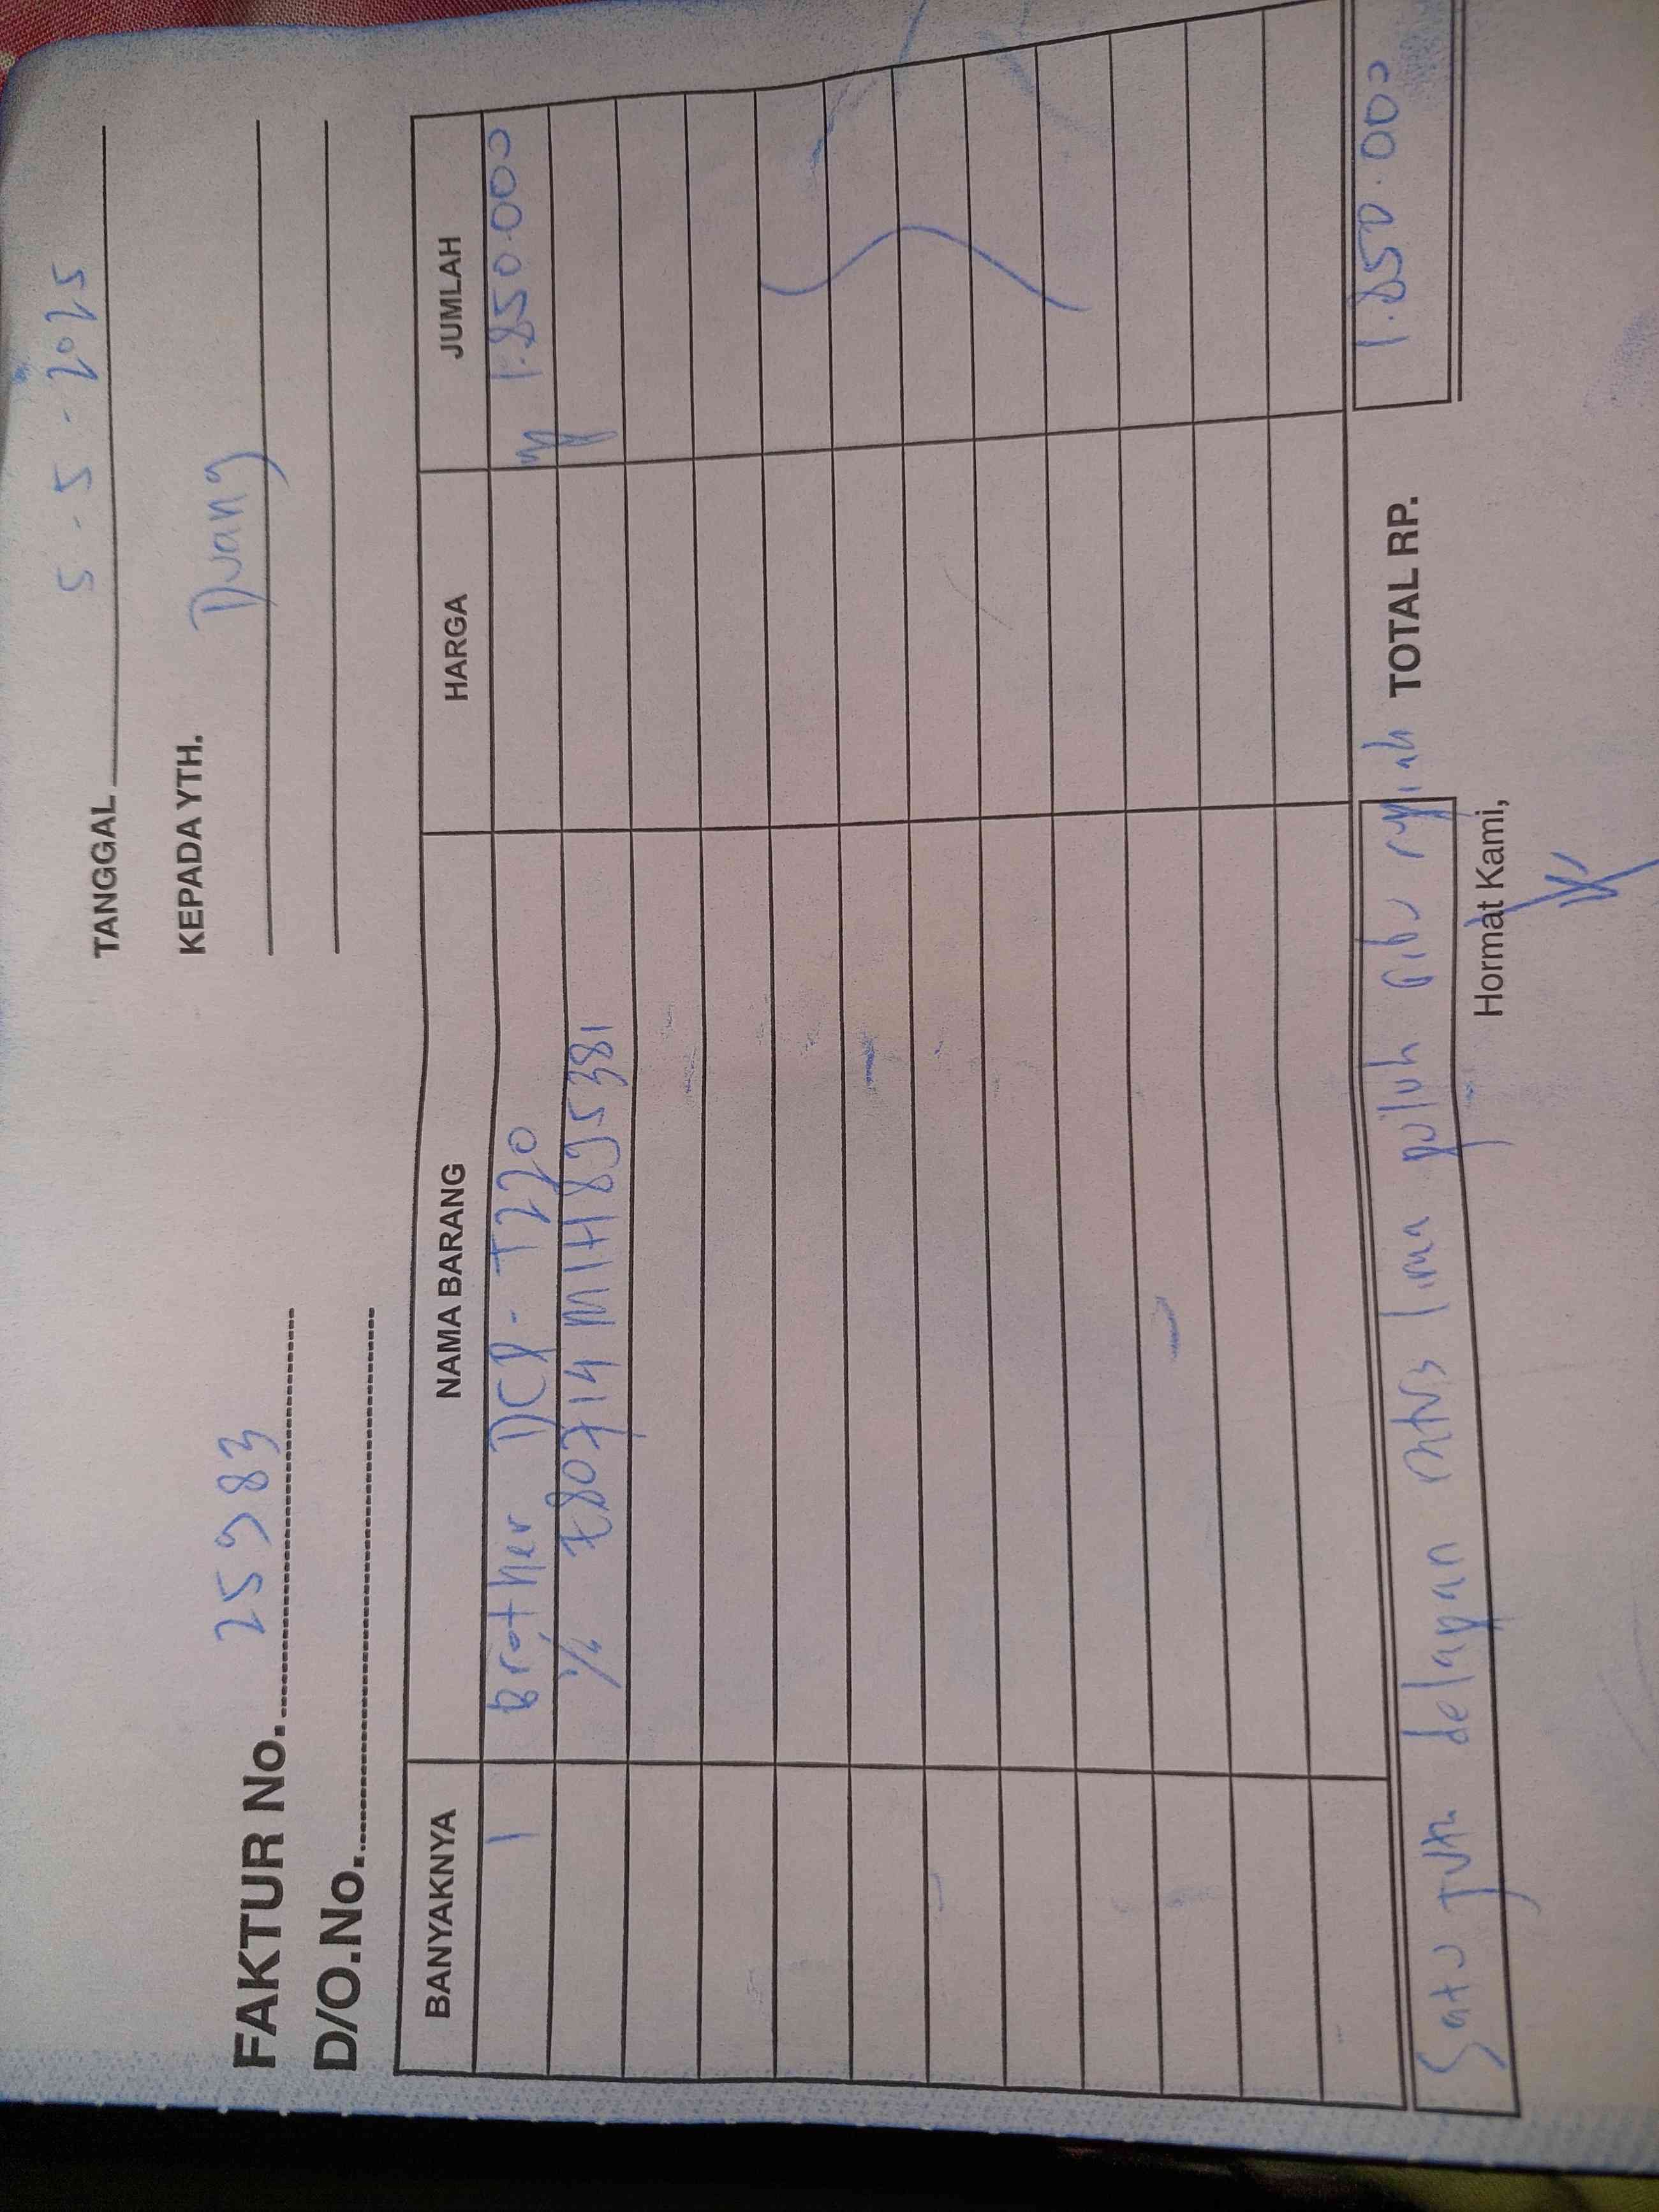 TANGGAL 5 - 5 - 2025
FAKTUR No. 25983
KEPADA YTH. Duang
D/O.No.
BANYAKNYA NAMA BARANG HARGA JUMLAH
1 Brother DCP - T220 1.850.000
E80714M1H895381
Satu juta delapan ratus lima puluh ribu rupiah TOTAL RP. 1.850.000
Hormat Kami,